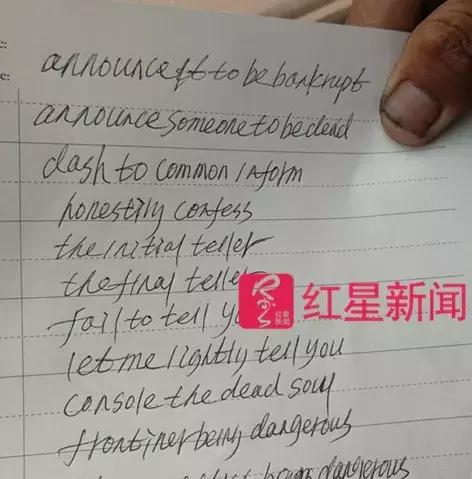 announce it to be bankrupt
announce someone to be dead
dash to common inform
honestily confess
the initial teller
the final teller
fail to tell
红星新闻
红星新闻
let me lightly tell you
console the dead soul
being dangerous
dangerous